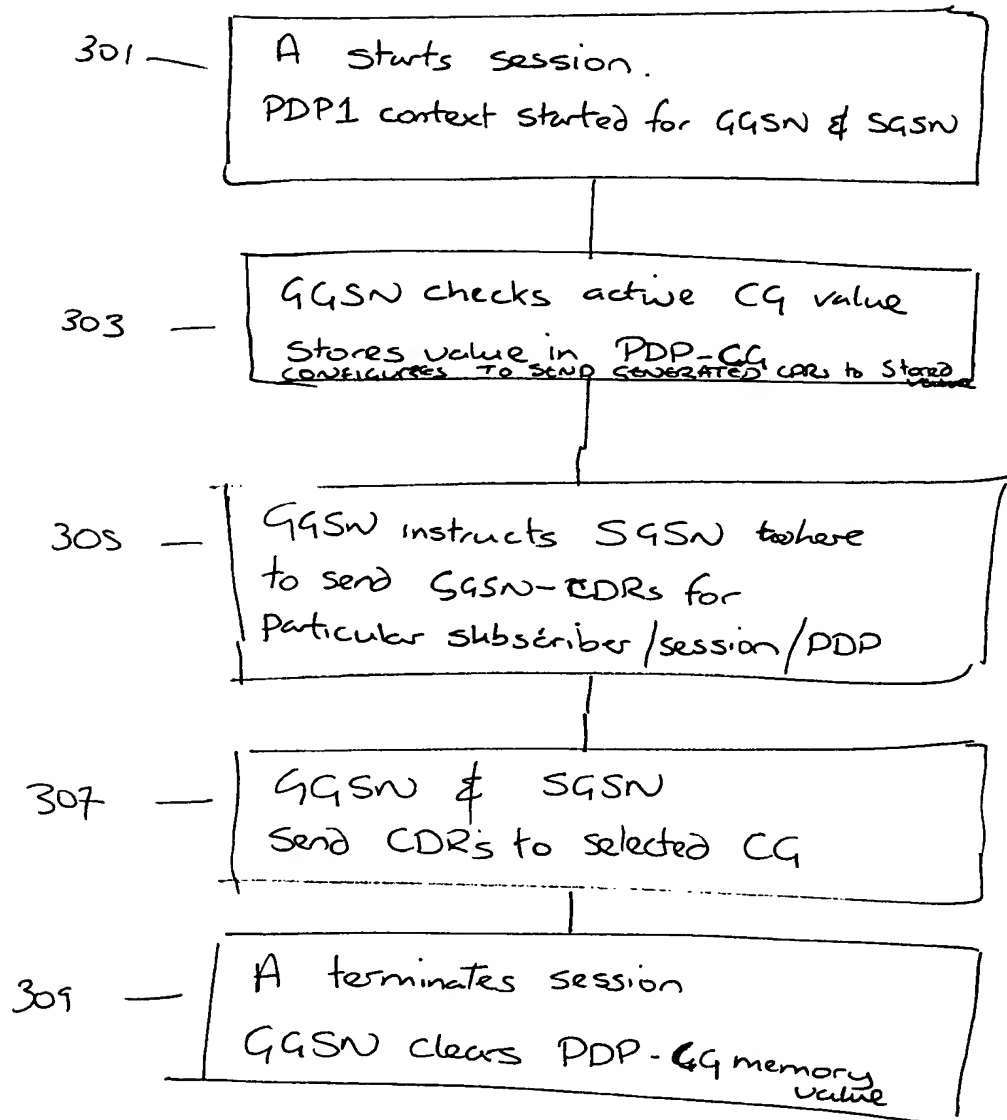 301
A starts session.
PDP1 context started for GGSN & SGSN
303
GGSN checks active CG value
Stores value in PDP-CG
CONFIGURES TO SEND GENERATED CDRs to Stored
value
305
GGSN instructs SGSN where
to send SGSN-CDRs for
Particular subscriber/session/PDP
307
GGSN & SGSN
Send CDRs to selected CG
309
A terminates session
GGSN clears PDP-CG memory
value